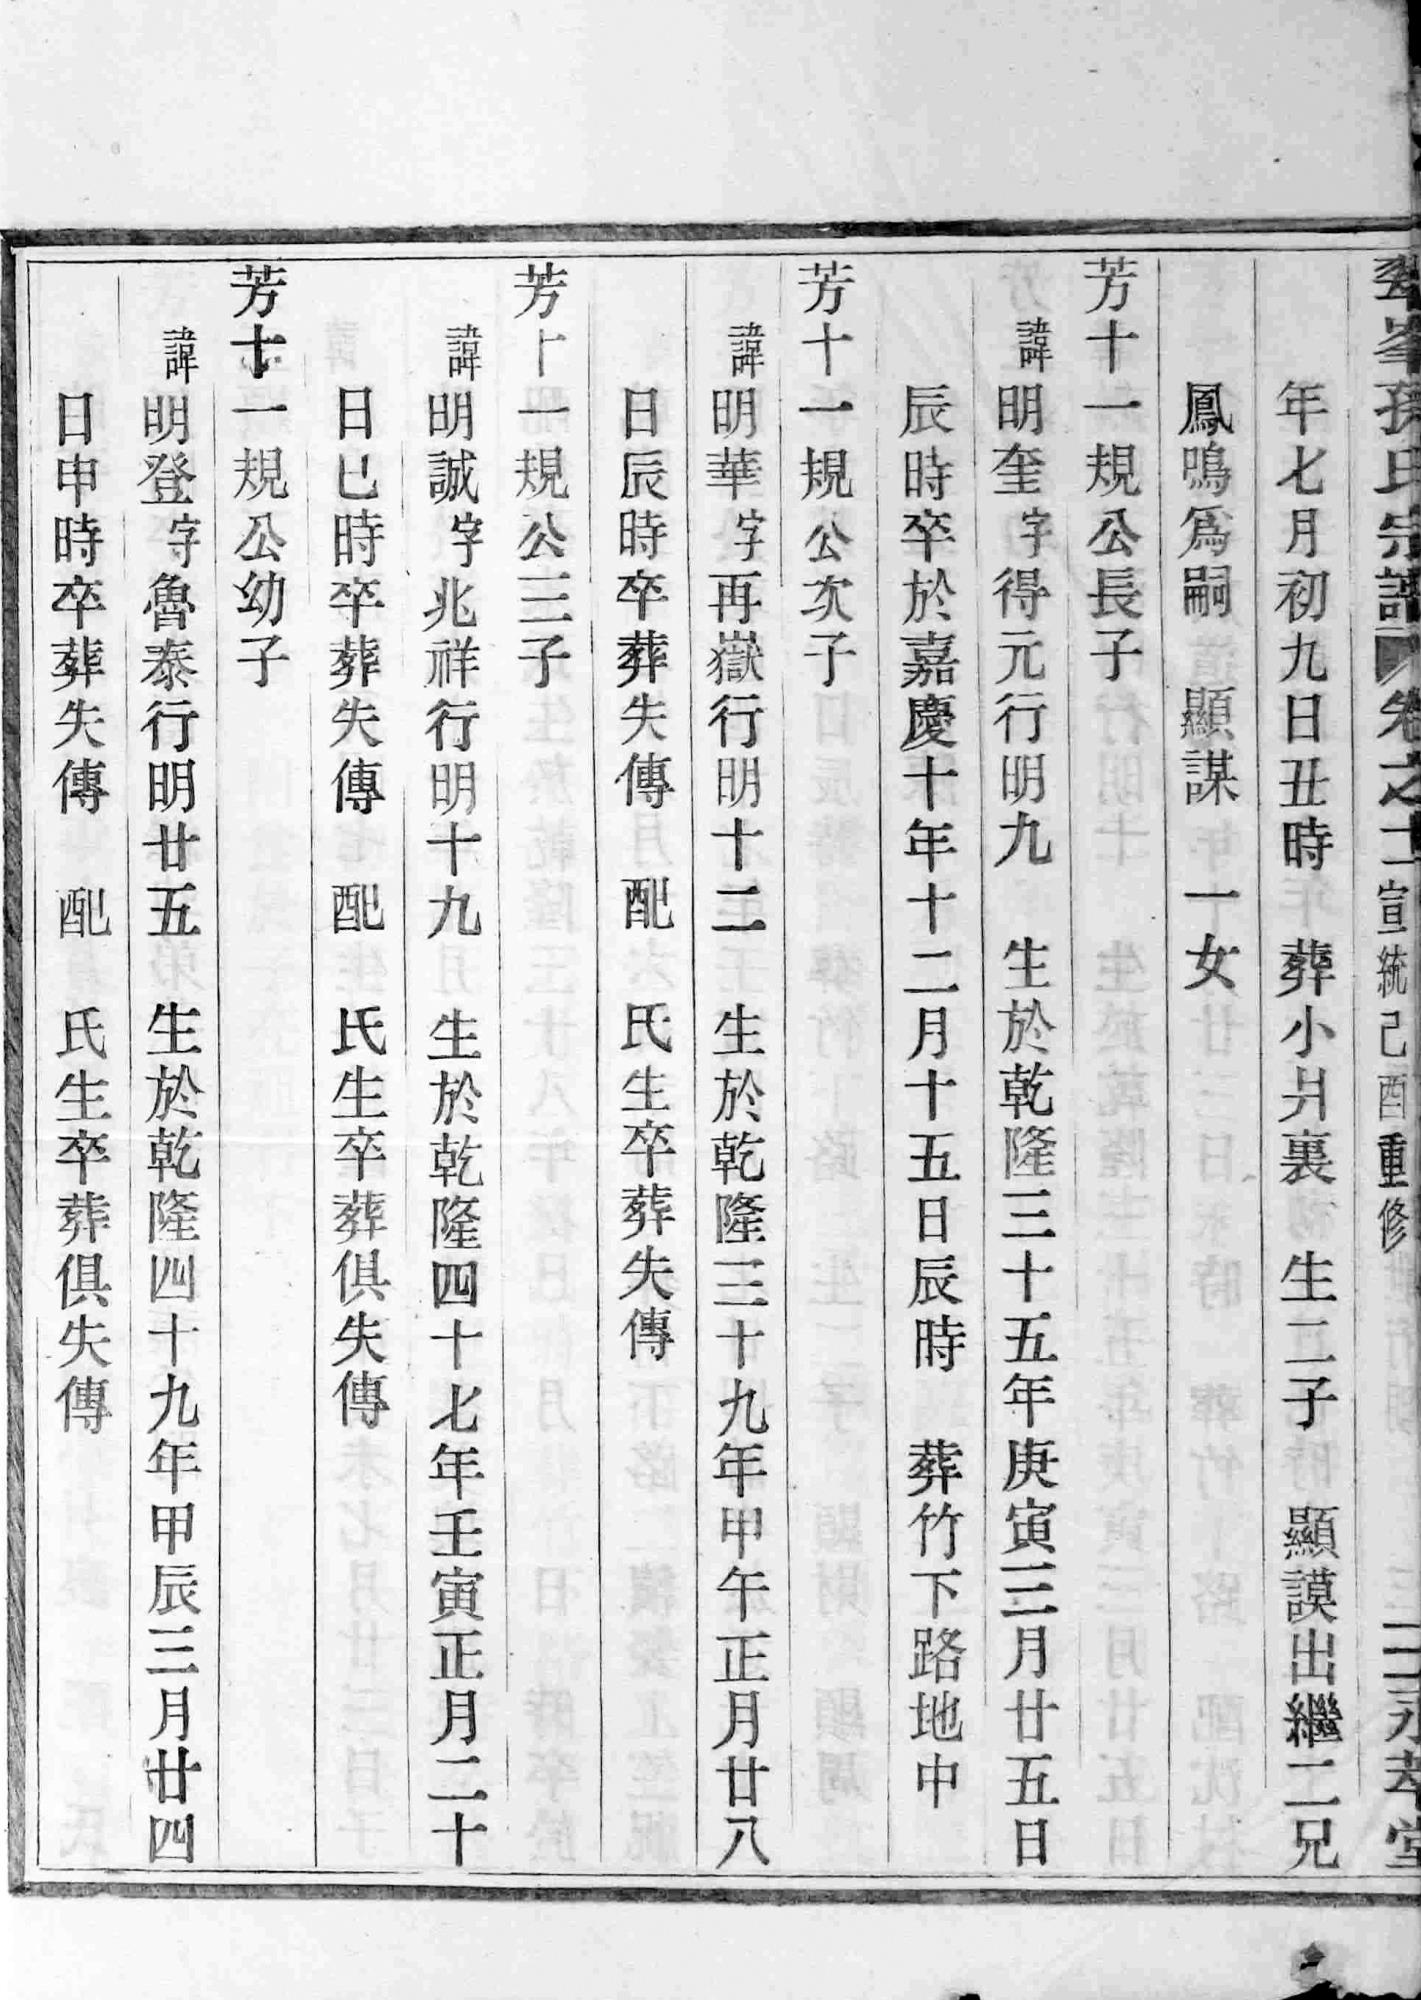 翠峯孫氏宗譜 卷之十一 宣統己酉重修 永萃堂
年七月初九日丑時 葬小爿裏 生二子 顯謨出繼二兄
鳳鳴爲嗣 顯謀 一女
芳十一規公長子
諱明奎字得元行明九 生於乾隆三十五年庚寅三月廿五日
辰時卒於嘉慶十年十二月十五日辰時 葬竹下路地中
芳十一規公次子
諱明華字再嶽行明十二 生於乾隆三十九年甲午正月廿八
日辰時卒葬失傳 配 氏生卒葬失傳
芳十一規公三子
諱明誠字兆祥行明十九 生於乾隆四十七年壬寅正月二十
日巳時卒葬失傳 配 氏生卒葬俱失傳
芳十一規公幼子
諱明登字魯泰行明廿五 生於乾隆四十九年甲辰三月廿四
日申時卒葬失傳 配 氏生卒葬俱失傳